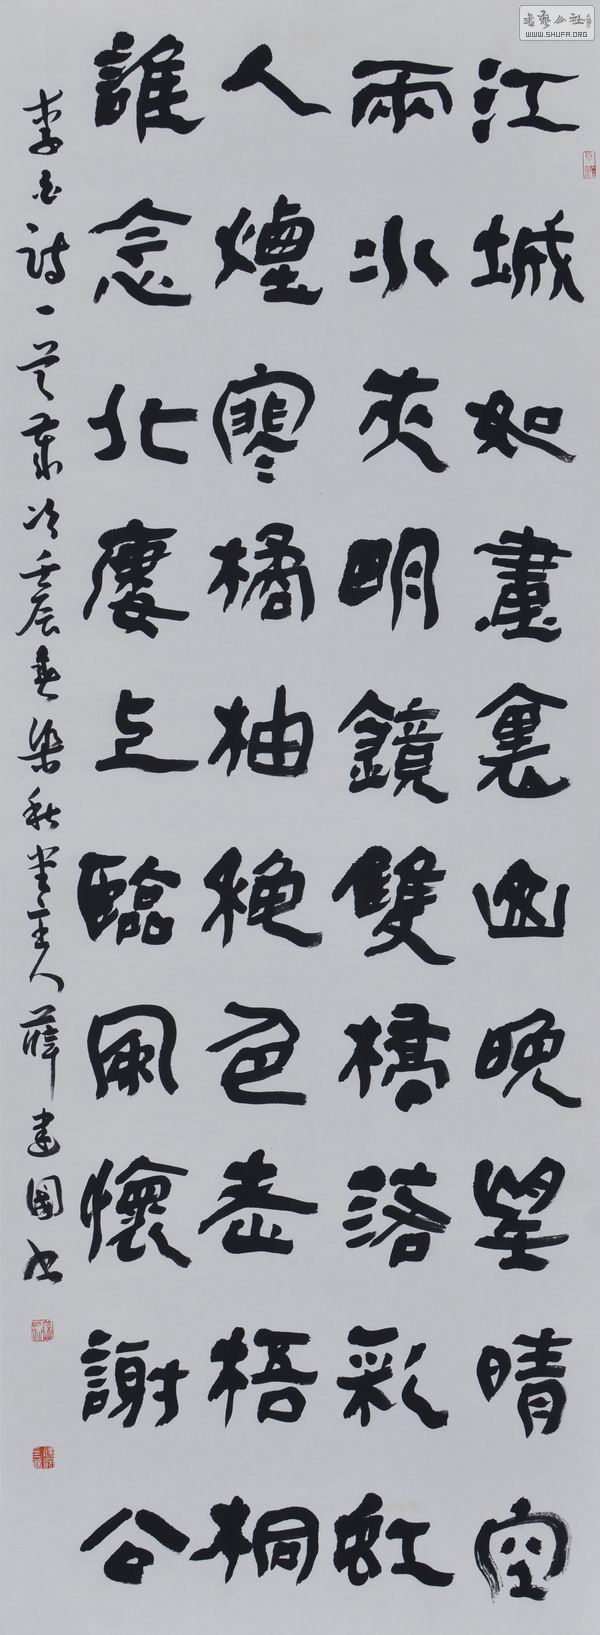 書藝公社
WWW.SHUFA.ORG
江城如畫裏山晚望晴空
兩水夾明鏡雙橋落彩虹
人煙寒橘柚秋色老梧桐
誰念北樓上臨風懷謝公
李白詩一首歲次壬辰春秋堂主人薛建國書